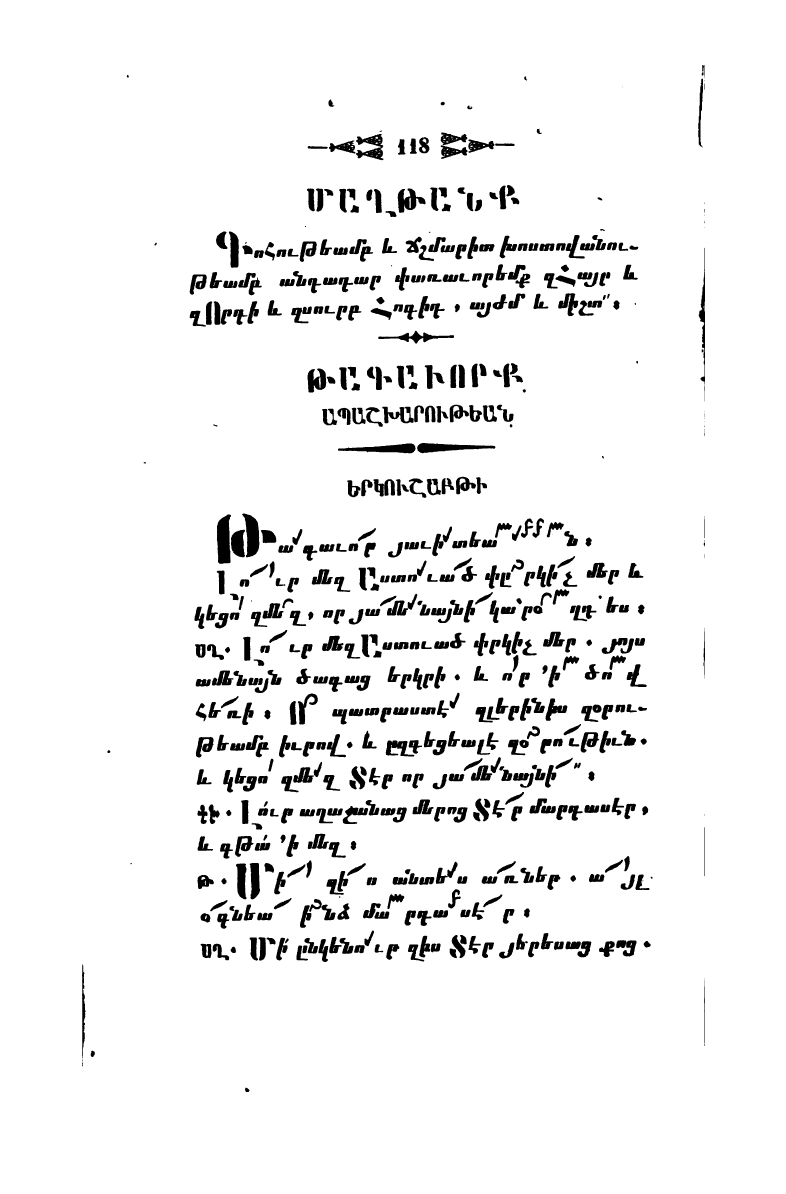 118
ՄԱՂԹԱՆՔ
Գոհութեամբ և ճշմարիտ խոստովանու-
թեամբ անդադար փառաւորեմք զՀայր և
զՈրդի և զսուրբ Հոգիդ, այժմ և միշտ՝՝։
ԹԱԳԱՒՈՐՔ
ԱՊԱՇԽԱՐՈՒԹԵԱՆ
ԵՐԿՈՒՇԱԲԹԻ
Թագաւոր յաւիտեան։
Լուր մեզ Աստուած փրկիչ մեր և
կեցո զմեզ, որ յամենայնի կարօղդ ես։
ՍՂ. Լուր մեզ Աստուած փրկիչ մեր. յոյս
ամենայն ծագաց երկրի. և որ ՚ի ծով
հեռի։ Ո պատրաստէ զլերինխս զօրու-
թեամբ իւրով. և ըզգեցեալէ զօրութիւն.
և կեցո զմեզ Տէր որ յամենայնի՝՝։
ՔԻ. Լուր աղաչանաց մերոց Տէր մարդասէր,
և գթա ՚ի մեզ։
Թ. Մի զիս անտես առներ. այլ
օգնեա ինձ մարդասէր։
ՍՂ. Մի ընկենուր զիս Տէր յերեսաց քոց.